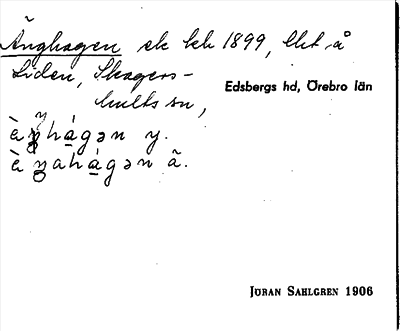 Änghagen ek kh 1899, Ekt å
Liden, Skagers-
hults sn,
Edsbergs hd, Örebro län
è ŋhágən y.
è ŋahágən ã.
JÖRAN SAHLGREN 1906